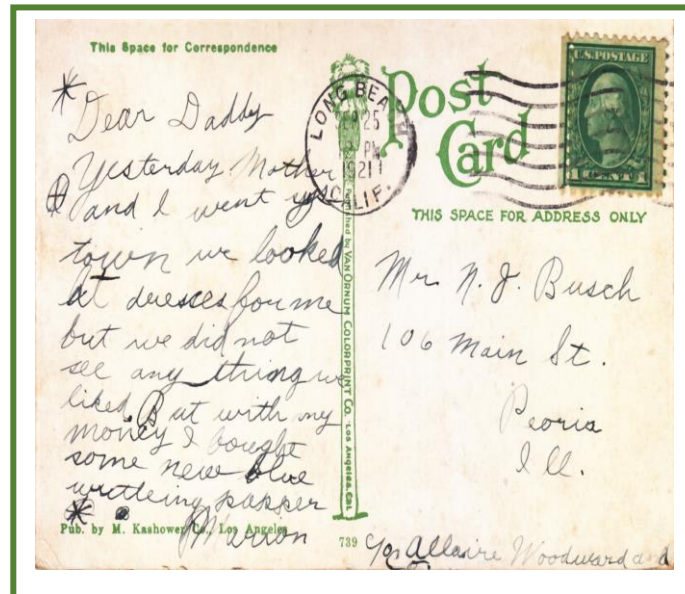 This Space for Correspondence
Dear Daddy
Yesterday Mother
and I went
town we looked
at dresses for me
but we did not
see any thing we
liked. But with my
money I bought
some new blue
writteing papper
Marion
Pub. by M. Kashower Co., Los Angeles
Published by Van Ornum Colorprint Co. Los Angeles, Cal.
739
LONG BEA
25
PM
1921
CALIF.
Post
Card
U.S. POSTAGE
THIS SPACE FOR ADDRESS ONLY
Mr. N. J. Busch
106 Main St.
Peoria
Ill.
Allaire Woodward and